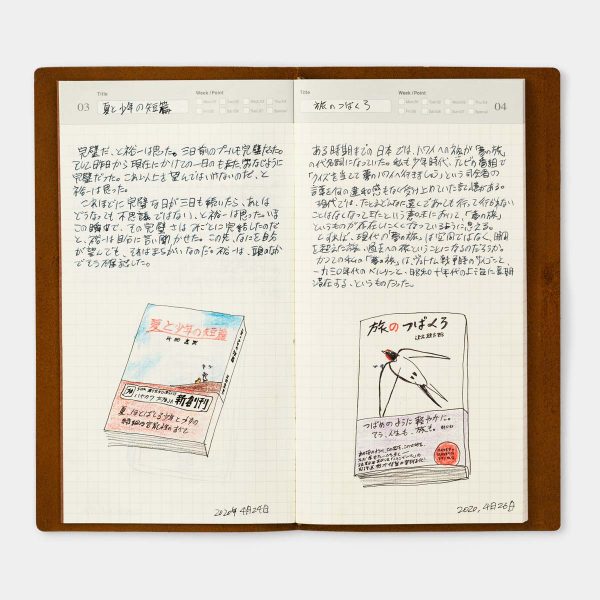 Title
Week / Point
03
夏と少年の短篇
完璧だ、と裕一は思った。三日前のプールも完璧だった。
そして昨日から現在にかけての一日もまた、おなじように
完璧だった。これ以上を望んではいけないのだ、と
裕一は思った。
これほどに完璧な日が三日も続いたら、あとは
どうなっても不思議ではない、と裕一は思った。いま
この瞬間まで、その完璧さはみごとに完結したのだ
と、裕一は自分に言い聞かせた。この先、なにを自分
が望んでも、それはまちがいなのだ。裕一は、頭のなか
でそう確認した。
夏と少年の短篇
片岡義男
ハヤカワ文庫JA
新創刊
2020年4月29日
Title
Week / Point
旅のつばくろ
04
ある時期までの日本では、ハワイへの旅が「夢の旅」
の代名詞になっていた。私も少年時代、テレビの番組で
「クイズを当てて夢のハワイへ行きましょう」という司会者の
言葉を何の違和感もなく受け止めていた記憶がある。
現代では、たとえどんなに遠くであっても行って行かれない
ことはなくなってきたという意味において、「夢の旅」
というものが存在しにくくなっているように思える。
とすれば、現代の「夢の旅」は空間ではなく、時間
を超えた旅、過去への旅ということになるのだろうか。
かつての私の「夢の旅」は、ヴェトナム戦争時のサイゴンと、
一九三〇年代のベルリンと、昭和十年代の上海に長期
滞在する、というものだった。
旅のつばくろ
沢木耕太郎
つばめのように軽やかに。
そう、人生も、旅も。
2020, 4月26日